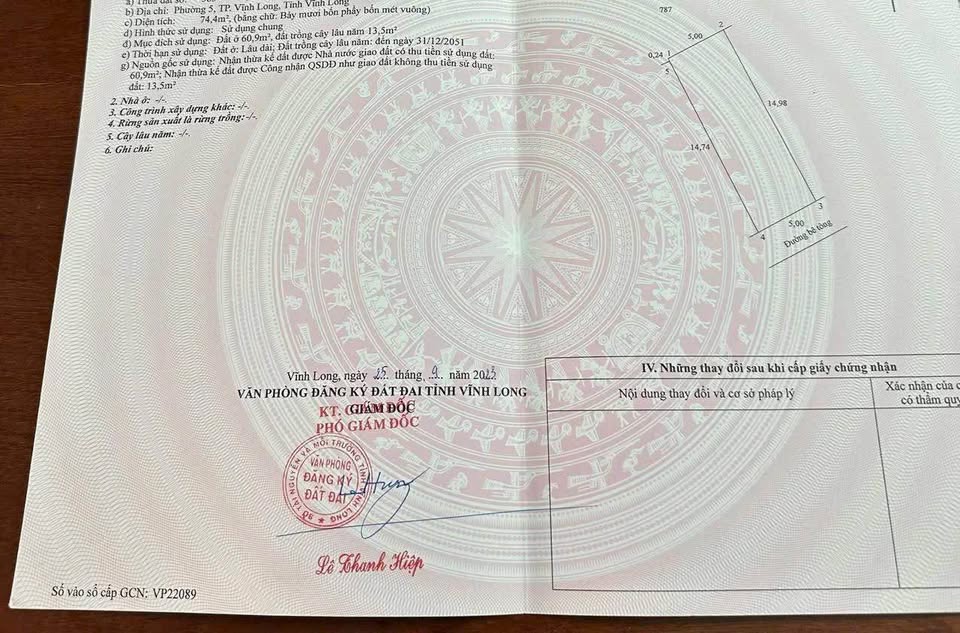 b) Địa chỉ: Phường 5, TP. Vĩnh Long, Tỉnh Vĩnh Long
c) Diện tích: 74,4m², (bằng chữ: Bảy mươi bốn phẩy bốn mét vuông)
d) Hình thức sử dụng: Sử dụng chung
đ) Mục đích sử dụng: Đất ở 60,9m², đất trồng cây lâu năm 13,5m²
e) Thời hạn sử dụng: Đất ở: Lâu dài; Đất trồng cây lâu năm: đến ngày 31/12/2051
g) Nguồn gốc sử dụng: Nhận thừa kế đất được Nhà nước giao đất có thu tiền sử dụng đất:
60,9m²; Nhận thừa kế đất được Công nhận QSDĐ như giao đất không thu tiền sử dụng
đất: 13,5m²
2. Nhà ở: -/-.
3. Công trình xây dựng khác: -/-.
4. Rừng sản xuất là rừng trồng: -/-.
5. Cây lâu năm: -/-.
6. Ghi chú:
787
2
5,00
0,24 1
5
14,98
14,74
3
5,00
4
Đường bê tông
Vĩnh Long, ngày 25 tháng 9 năm 2023
VĂN PHÒNG ĐĂNG KÝ ĐẤT ĐAI TỈNH VĨNH LONG
KT. GIÁM ĐỐC
PHÓ GIÁM ĐỐC
SỞ TÀI NGUYÊN VÀ MÔI TRƯỜNG TỈNH VĨNH LONG
VĂN PHÒNG
ĐĂNG KÝ
ĐẤT ĐAI
Lê Thanh Hiệp
Số vào sổ cấp GCN: VP22089
IV. Những thay đổi sau khi cấp giấy chứng nhận
Nội dung thay đổi và cơ sở pháp lý
Xác nhận của c
có thẩm quy